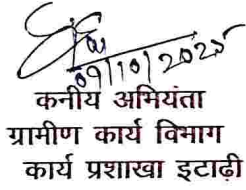 09/10/2025
कनीय अभियंता
ग्रामीण कार्य विभाग
कार्य प्रशाखा इटाढ़ी